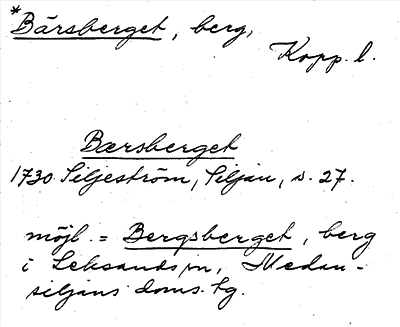 *Bärsberget, berg,
Kopp. l.
Bærsberget
1730 Siljeström, Siljan, s. 27.
möjl. = Bergsberget, berg
i Leksands sn, Nedan-
siljans doms. tg.